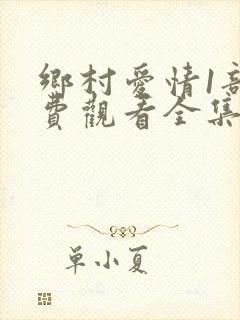 鄉村愛情1部
費觀看全集
单小夏